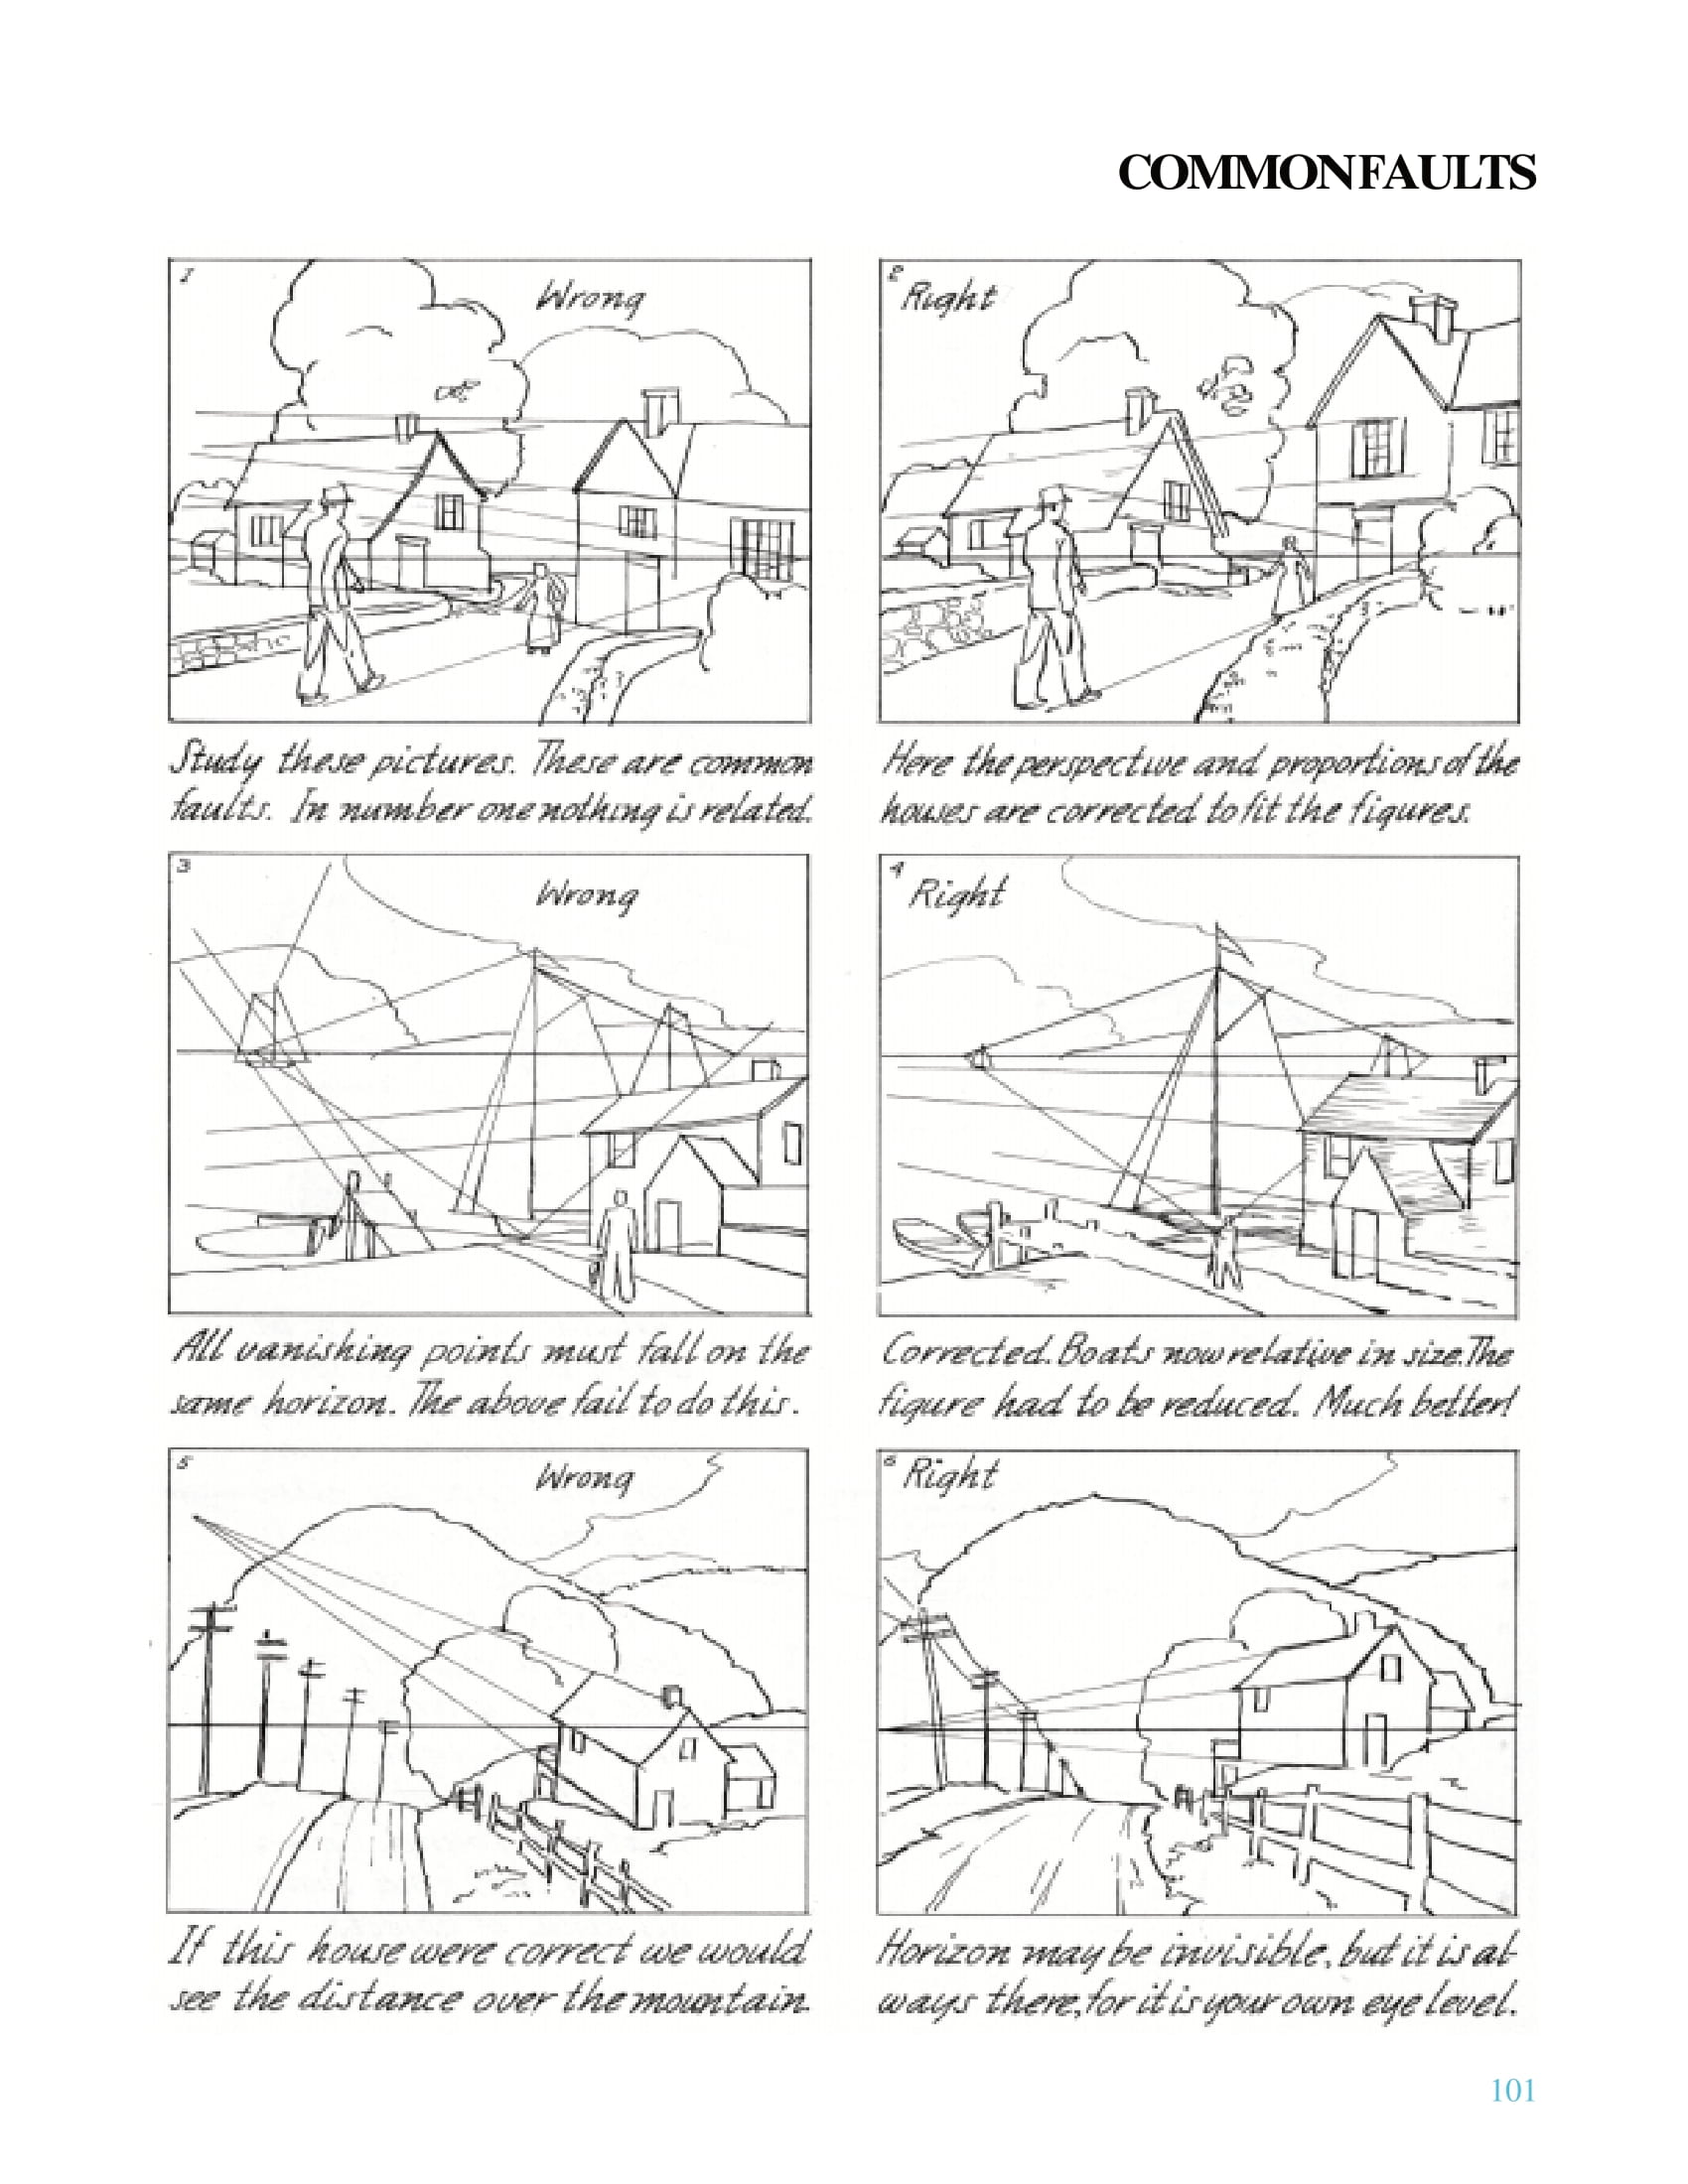 COMMON FAULTS
1
Wrong
2
Right
Study these pictures. These are common
faults. In number one nothing is related.
Here the perspective and proportions of the
houses are corrected to fit the figures.
3
Wrong
4
Right
All vanishing points must fall on the
same horizon. The above fail to do this.
Corrected. Boats now relative in size. The
figure had to be reduced. Much better!
5
Wrong
6
Right
If this house were correct we would
see the distance over the mountain.
Horizon may be invisible, but it is al-
ways there, for it is your own eye level.
101